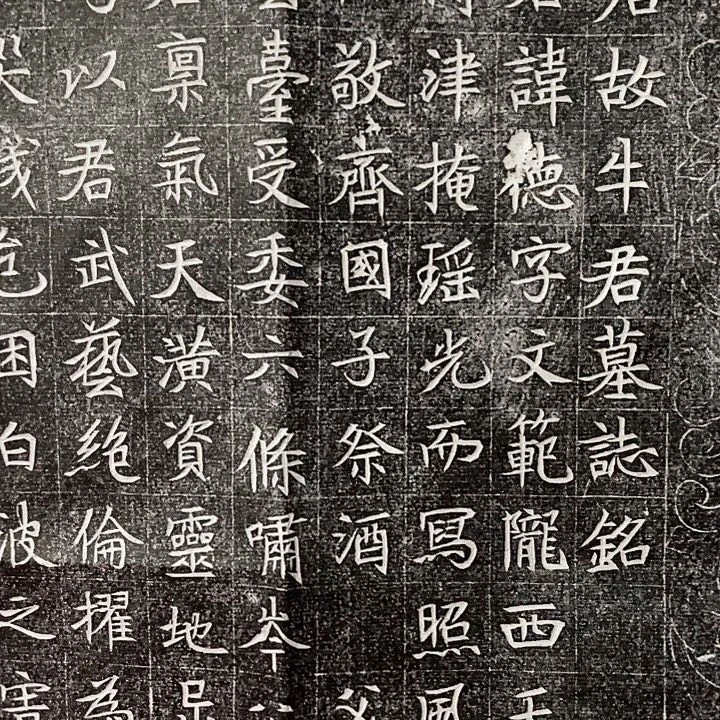 故牛君墓誌銘
諱德字文範隴西
津掩瑤光而冩照風
敬齊國子祭酒父
臺受委六條嘯
稟氣天潢資靈地足
以君武藝絶倫擢為
困白波之害